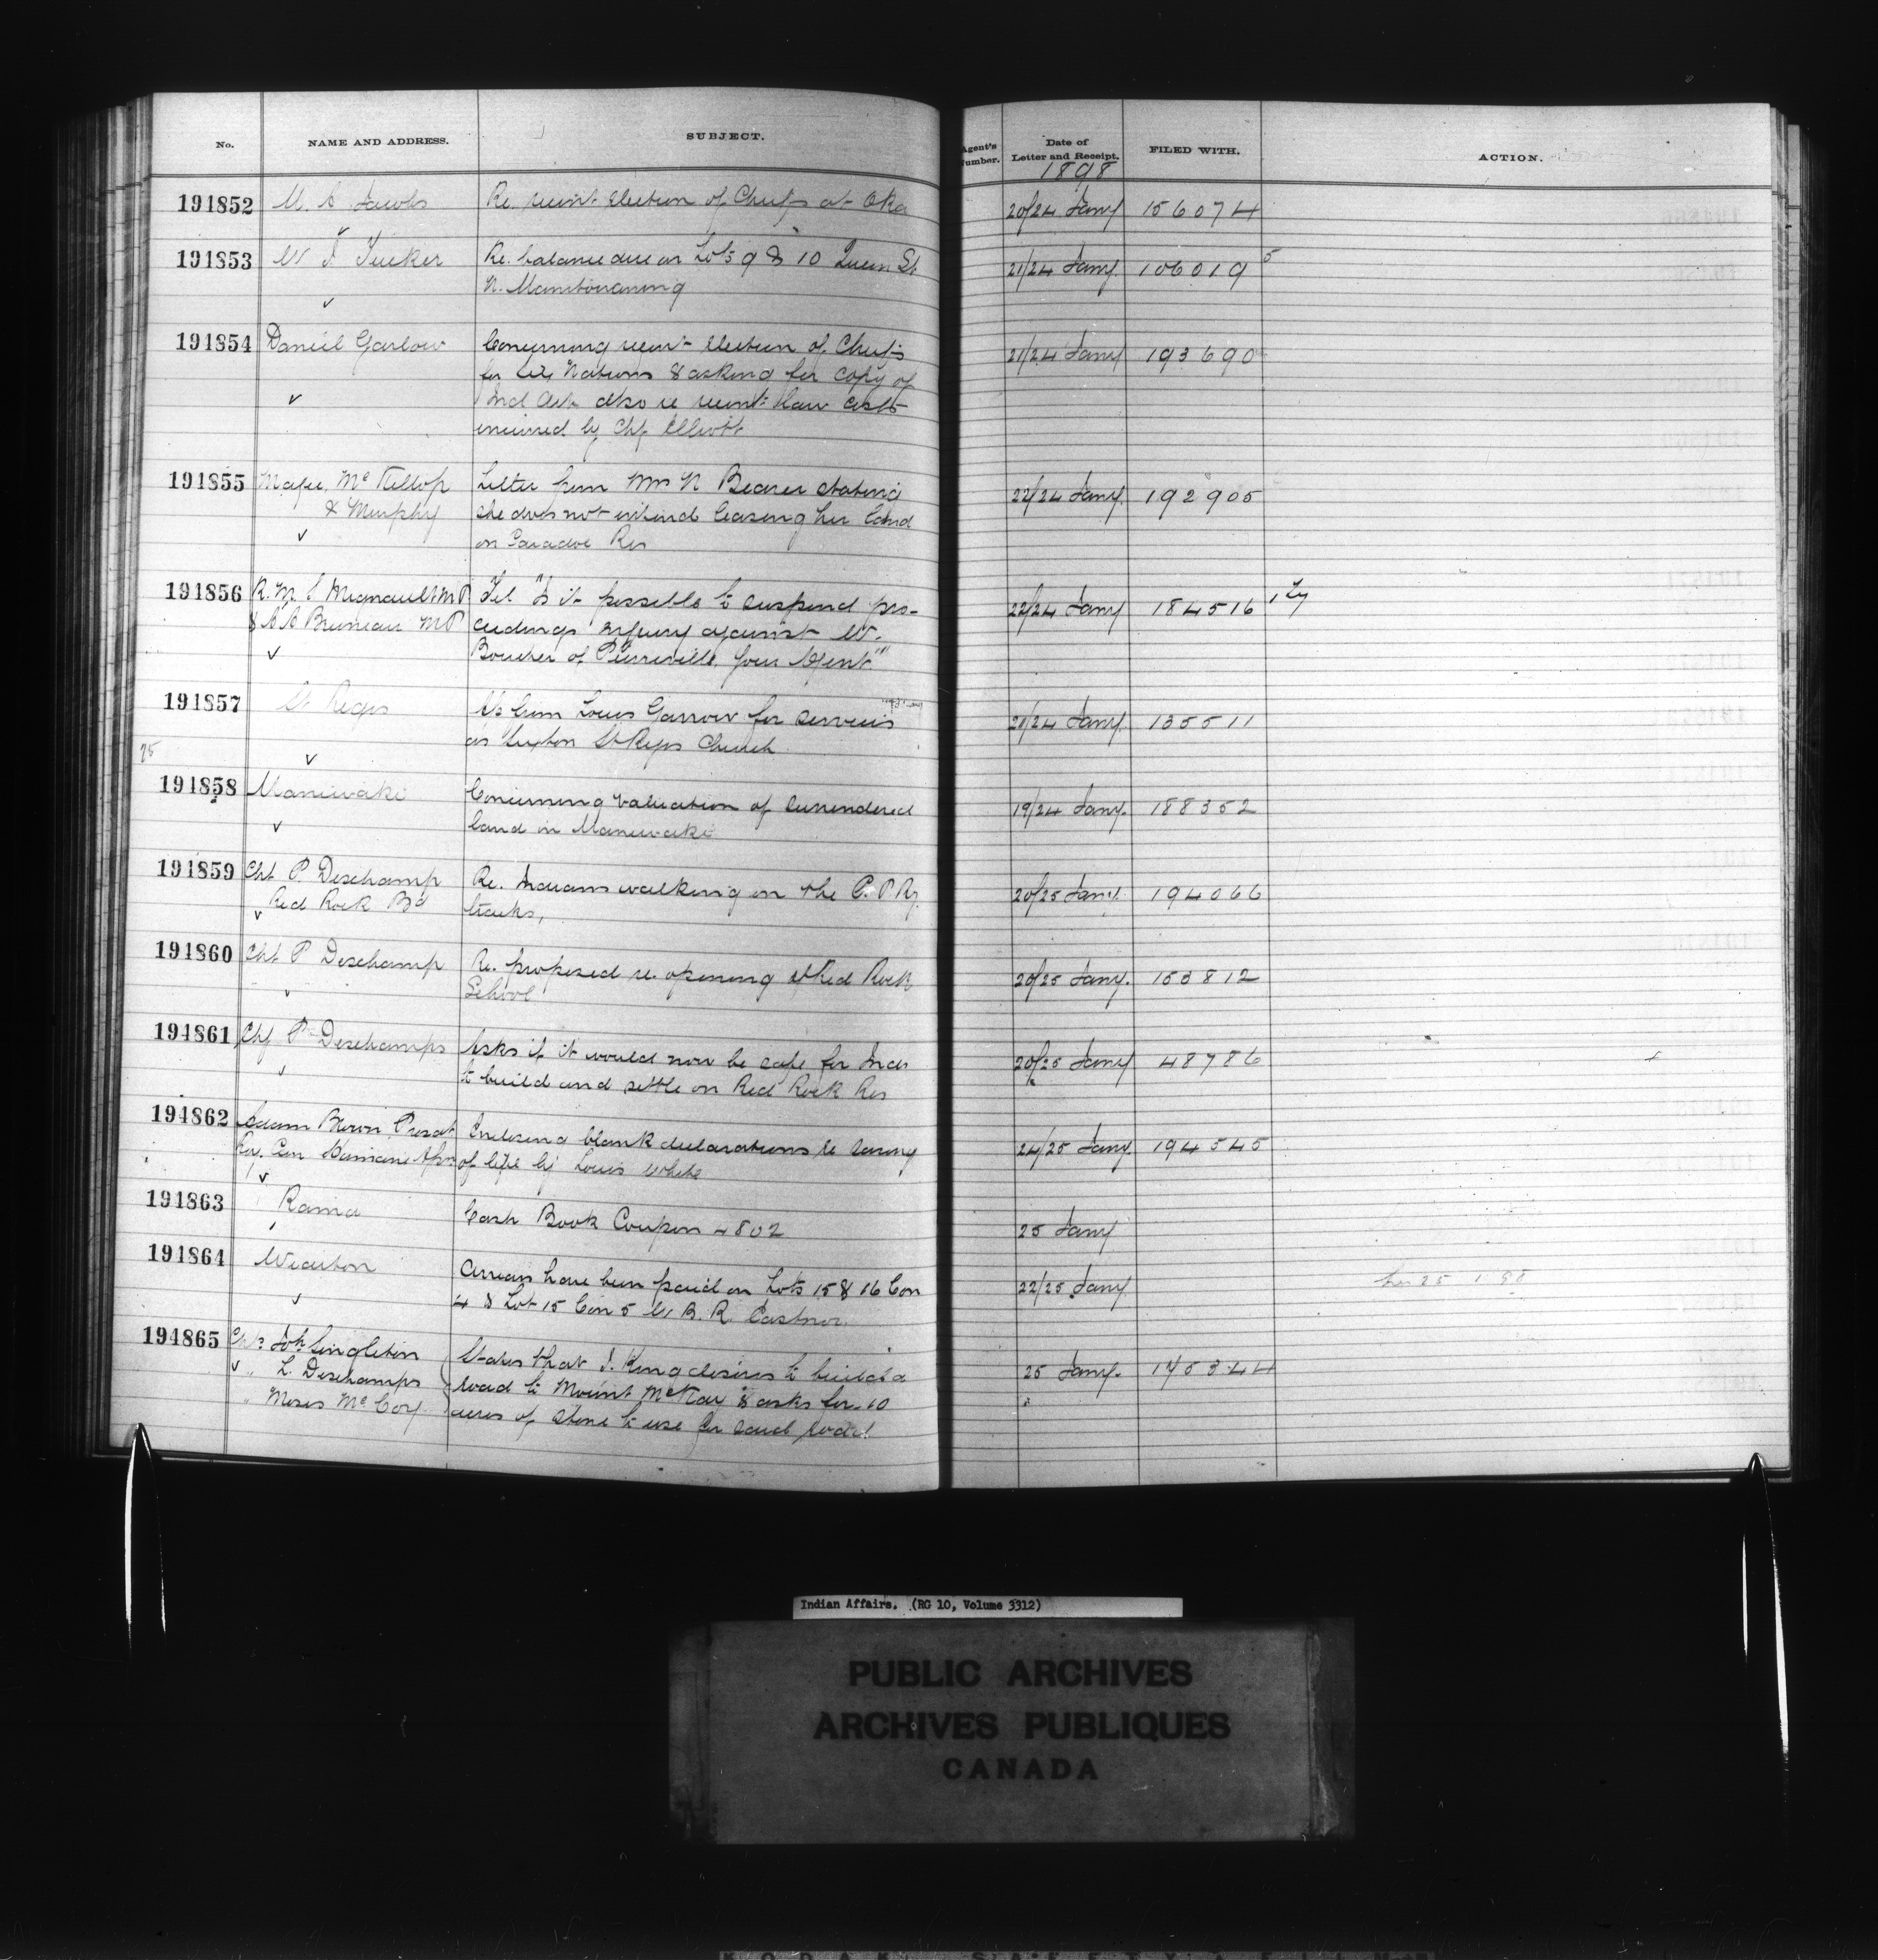 No. NAME AND ADDRESS. SUBJECT. Agent's Number. Date of Letter and Receipt. FILED WITH. ACTION.
1898
191852 M. S. Jacobs Re. recent election of Chiefs at Oka 20/24 Jany 156074
191853 W J Tucker Re. balance due on Lots 9 & 10 Queen St. 21/24 Jany 106019 5
N. Manitowaning
191854 Daniel Garlow Concerning recent election of Chiefs 21/24 Jany 193690
for Six Nations & asking for copy of
Ind Act also re recent law costs
incurred by Chf Elliott
191855 McKillop Letter from Mrs N Beaver stating 22/24 Jany. 192905
& Murphy she does not intend leasing her land
on Caradoc Res
191856 R. M. S Mignault MP Tel "Is it possible to suspend pro- 22/24 Jany 184516
& A A Bruneau MP ceedings against W.
Boucher of Pierreville, your Agent."
191857 St Regis from Louis Garrow for services 21/24 Jany. 135511
as Sexton St Regis Church
191858 Maniwaki Concerning valuation of surrendered 19/24 Jany. 188352
land in Maniwaki
191859 Chf P. Deschamp Re. Indians walking on the C. P. Ry. 20/25 Jany. 194066
Red Rock Bd tracks,
191860 Chf P Deschamp Re. proposed re. opening of Red Rock 20/25 Jany. 153812
School
191861 Chf P Deschamps Asks if it would now be safe for Inds 20/25 Jany 48786
to build and settle on Red Rock Res
191862 Adam Brown Presdt Enclosing blank declarations re saving 24/25 Jany. 194545
Roy. Can Humane Assn of life by Louis White
191863 Rama Cash Book Coupon 4802 25 Jany
191864 Wiarton Arrears have been paid on Lots 15 & 16 Con 22/25 Jany
4 & Lot 15 Con 5 W B. R. Eastnor.
191865 Chfs Jos. Singleton States that J. King desires to build a 25 Jany. 175344
" L. Deschamps road to Mount McKay & asks for 10
" Moses McCoy acres of stone to use for said road
Indian Affairs. (RG 10, Volume 3312)
PUBLIC ARCHIVES
ARCHIVES PUBLIQUES
CANADA